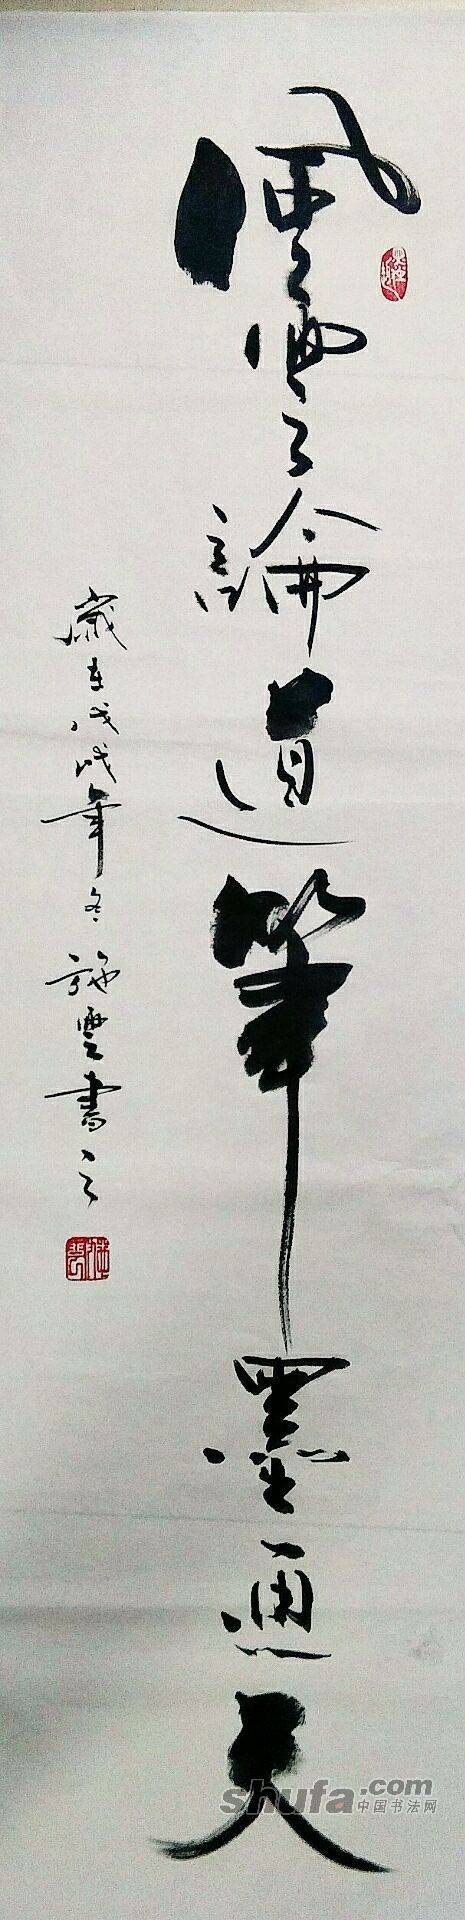 風雲論道筆墨通天
歲在戊戌年冬施雲書之
shufa.com
中国书法网